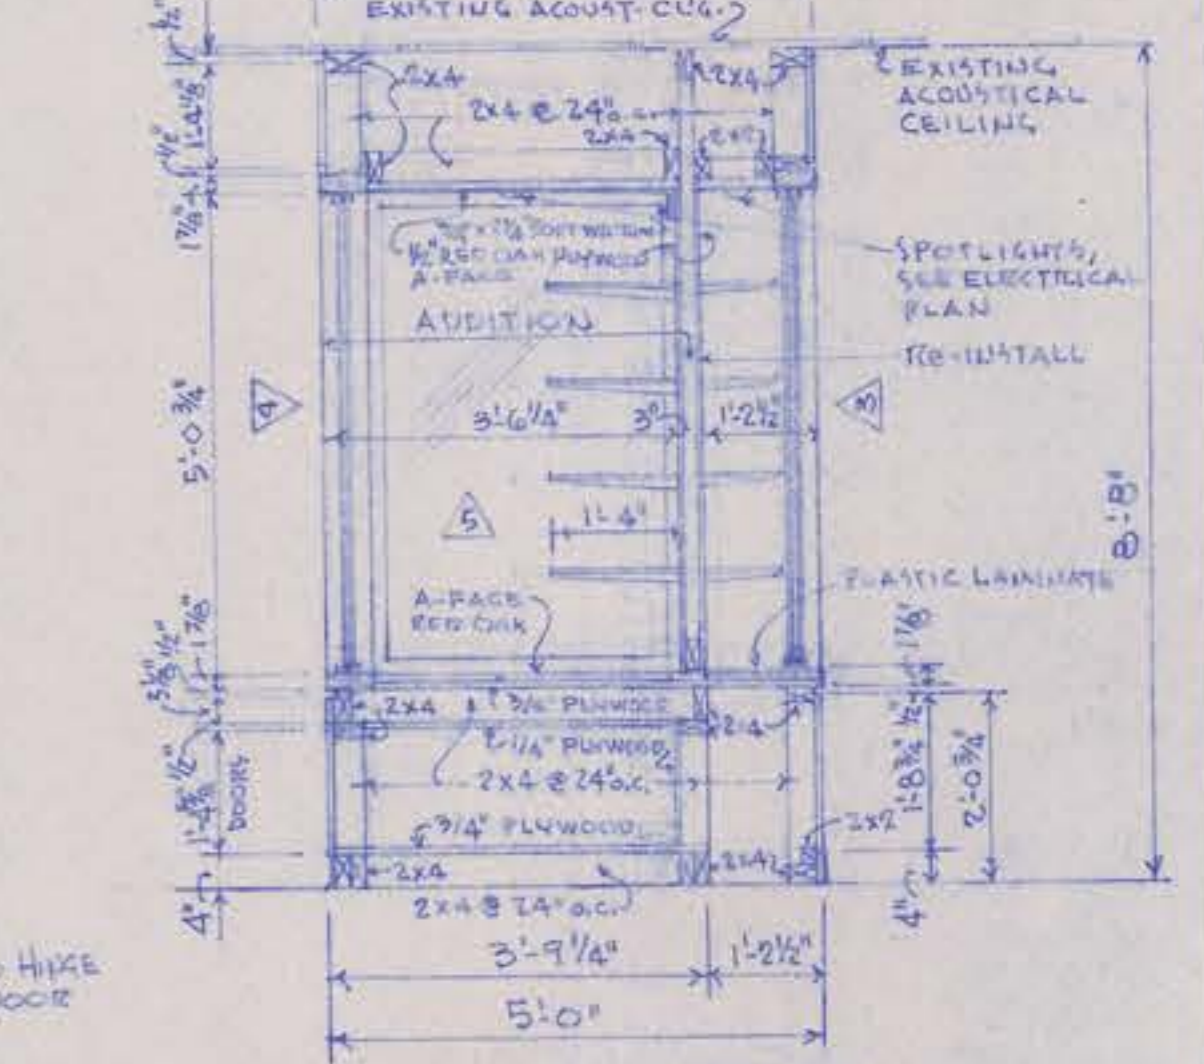 EXISTING ACOUST. CLG.
2X4
2X4
EXISTING
ACOUSTICAL
CEILING
2X4 @ 24" o.c.
2X4
2X2
1/2"
1'-4 1/8"
1/2"
1 7/8"
1/2" RED OAK PLYWOOD
A-FACE
SPOTLIGHTS,
SEE ELECTRICAL
PLAN
ADDITION
RE-INSTALL
4
3
3'-6 1/4"
3"
1'-2 1/2"
5'-0 3/4"
5
1'-4"
8'-8"
A-FACE
RED OAK
PLASTIC LAMINATE
1 7/8"
1 7/8"
1/2"
2X4
3/4" PLYWOOD
2X4
1/4" PLYWOOD
2X4 @ 24" o.c.
1/2"
DOORS
1/2"
1'-8 3/4"
2'-0 3/4"
3/4" PLYWOOD
2X2
2X4
2X4
2X4 @ 24" o.c.
4"
4"
HINGE
DOOR
3'-9 1/4"
1'-2 1/2"
5'-0"